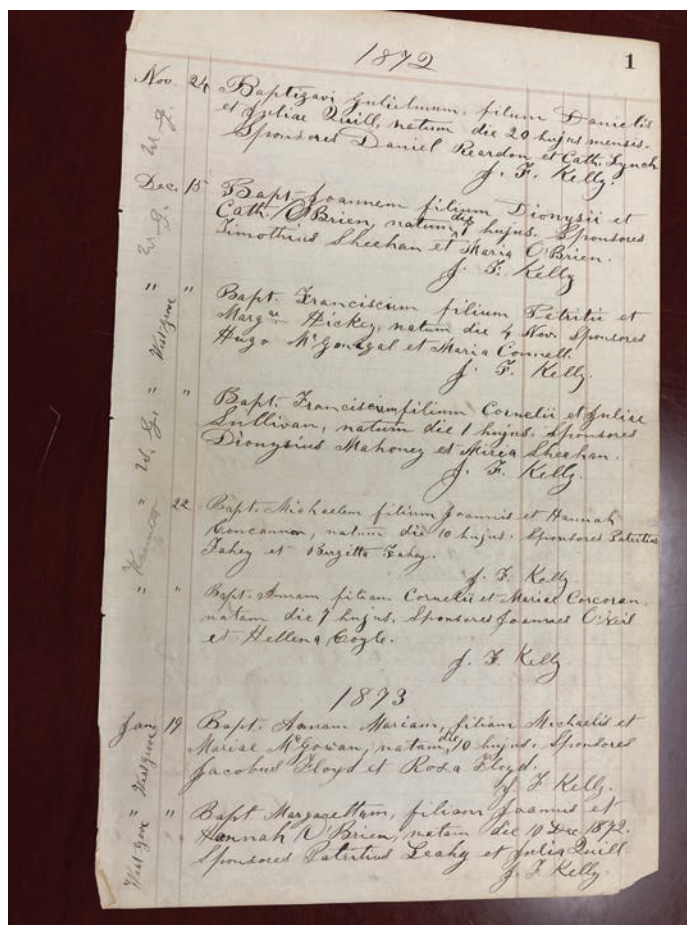 1872
1
Nov. 24 Baptizavi Gulielmum, filium Danielis
et Juliae Quill, natum die 20 hujus mensis.
Sponsores Daniel Reardon et Cath. Lynch
J. F. Kelly.
W. G.
Dec. 15 Bapt. Joannem filium Dionysii et
Cath. O'Brien, natum die 1 hujus. Sponsores
Timothius Sheehan et Maria O'Brien.
J. F. Kelly
W. G.
" " Bapt. Franciscum filium Patritii et
Margae Hickey, natum die 4 Nov. Sponsores
Hugo McGonigal et Maria Connell.
J. F. Kelly.
West Grove
" " Bapt. Franciscum filium Cornelii et Juliae
Sullivan, natum die 1 hujus. Sponsores
Dionysius Mahoney et Maria Sheehan.
J. F. Kelly.
W. G.
" 22 Bapt. Michaelem filium Joannis et Hannah
Concannon, natum die 10 hujus. Sponsores Patritius
Fahey et Birgitta Fahey.
J. F. Kelly
Kennett
" " Bapt. Annam filiam Cornelii et Mariae Corcoran.
natam die 7 hujus. Sponsores Joannes O'Neil
et Hellena Coyle.
J. F. Kelly.
1873
Jan. 19 Bapt. Annam Mariam, filiam Michaelis et
Mariae McGowan, natam die 10 hujus. Sponsores
Jacobus Floyd et Rosa Floyd.
J. F. Kelly.
West Grove
" " Bapt Margarettam, filiam Joannis et
Hannah O'Brien, natam die 10 Dec 1872.
Sponsores Patritius Leahy et Julia Quill.
J. F. Kelly.
West Grove